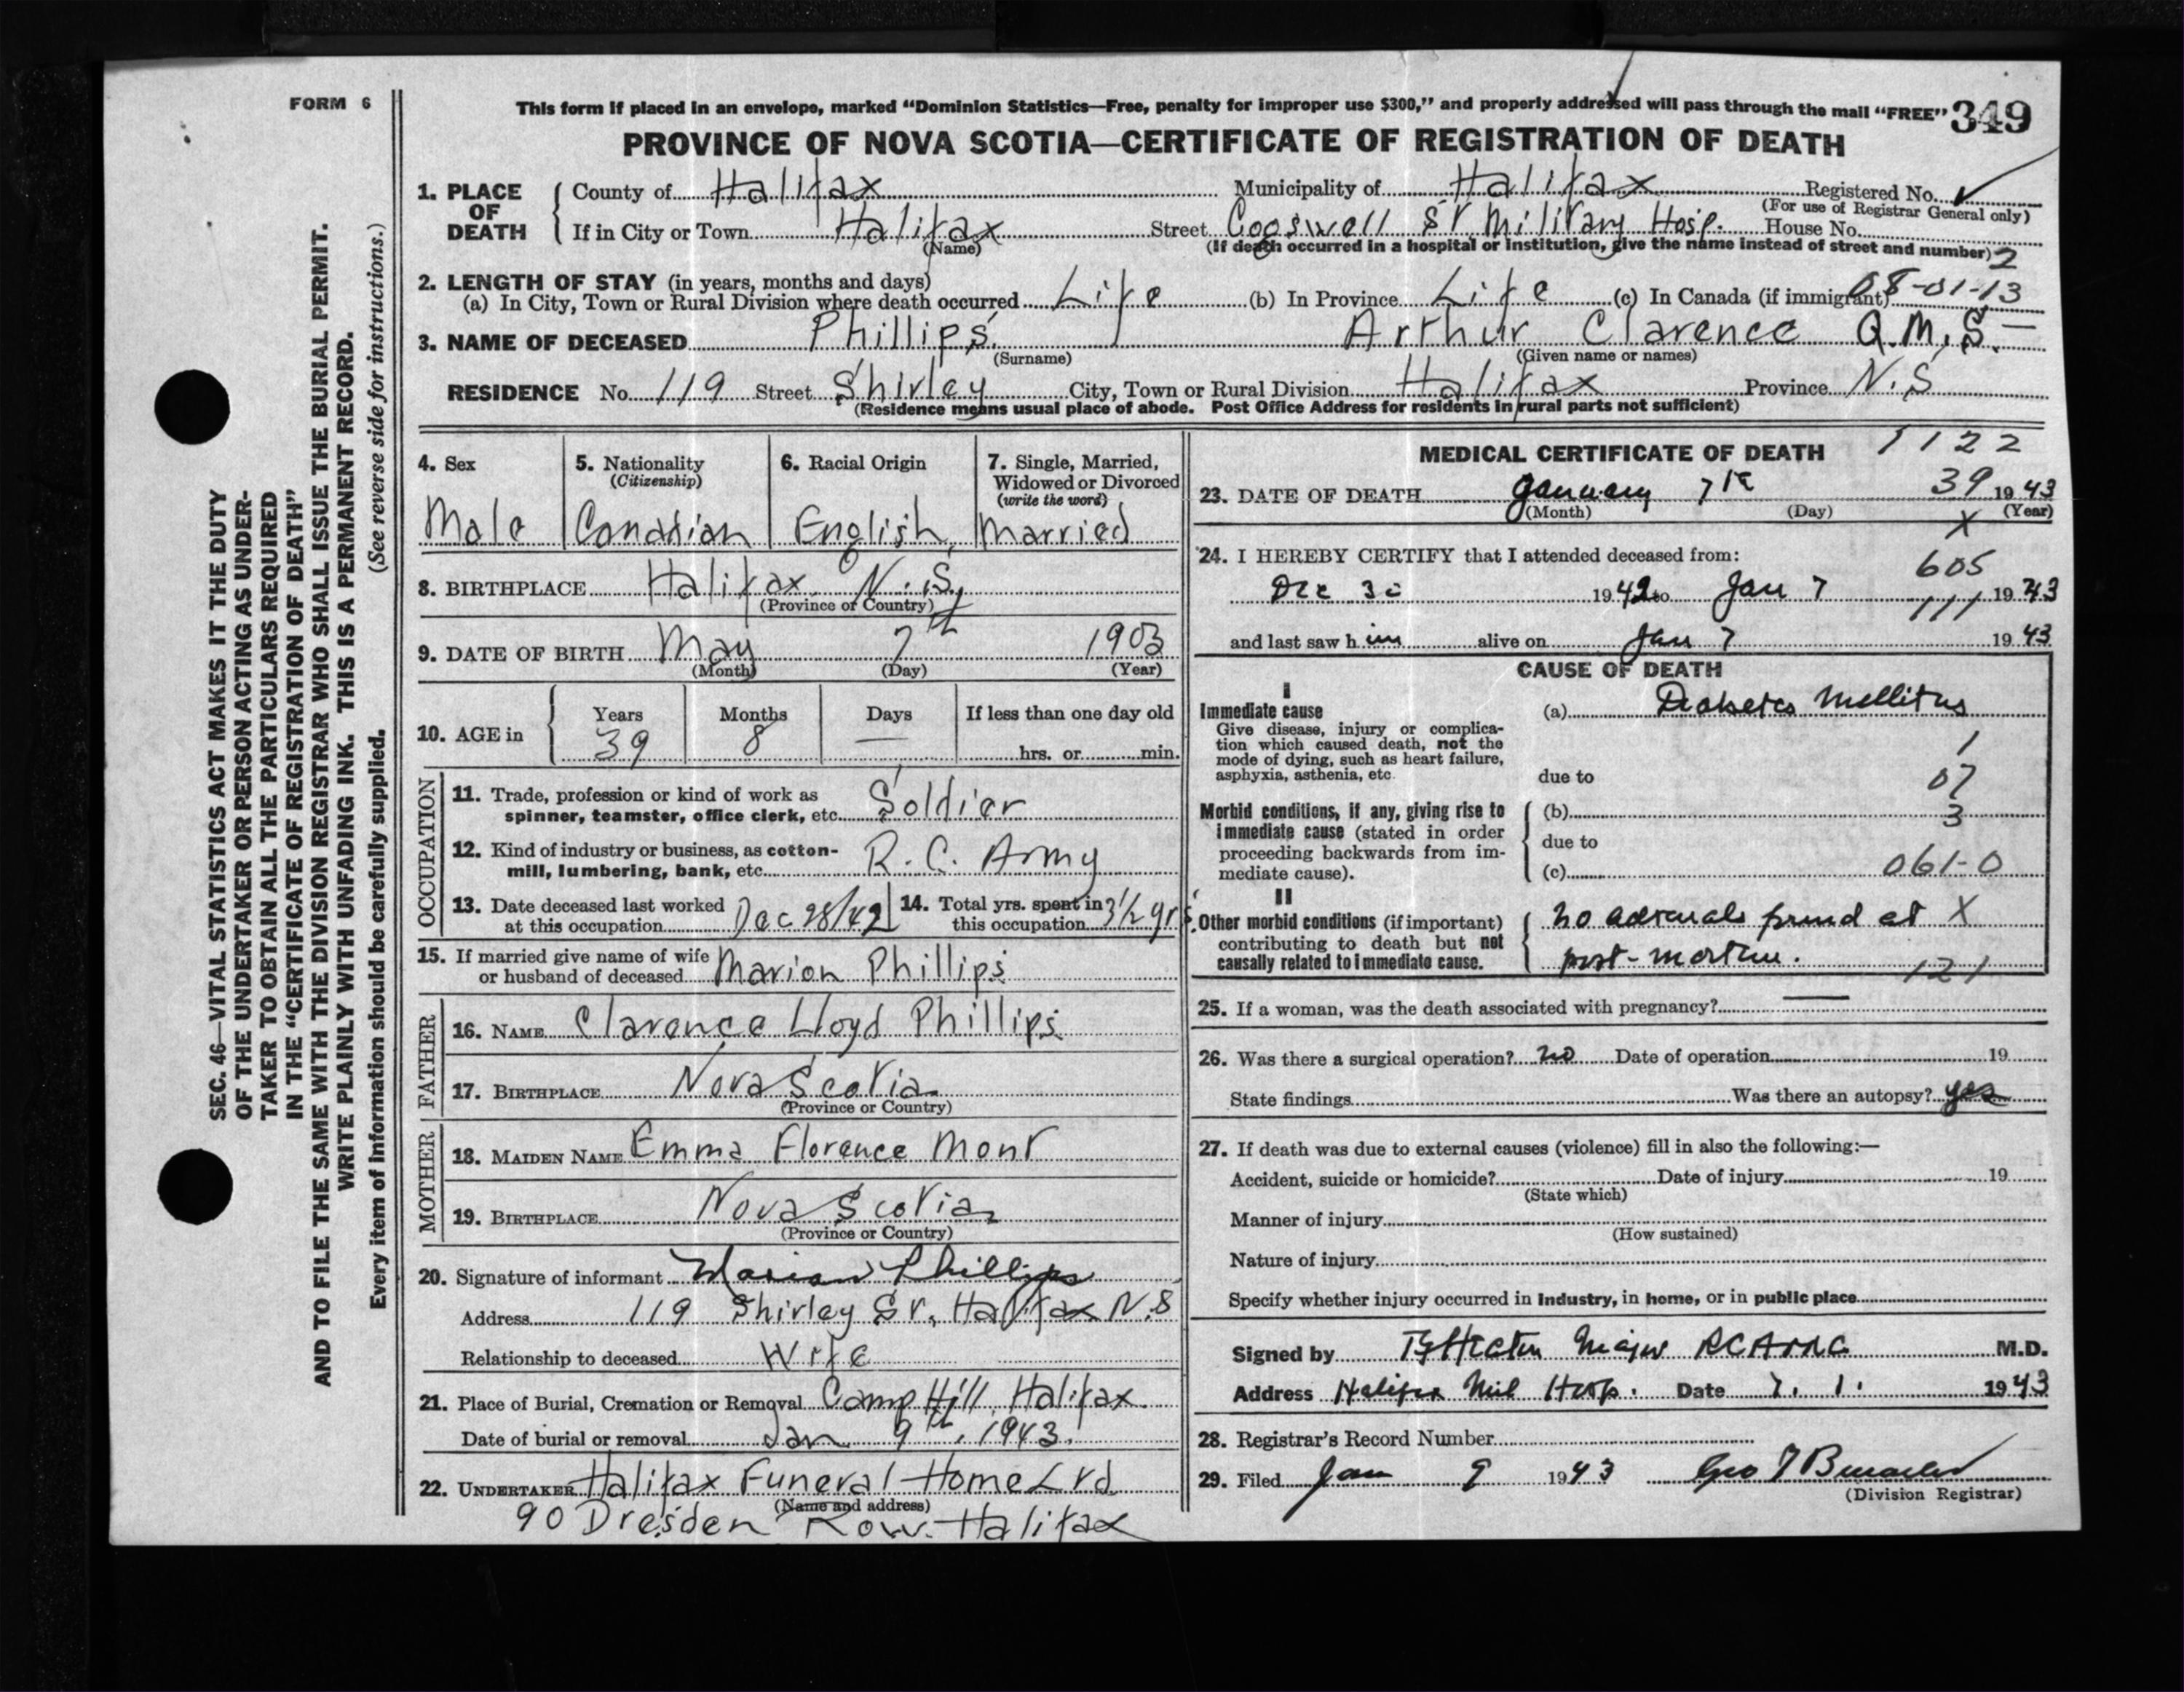 FORM 6
This form if placed in an envelope, marked “Dominion Statistics—Free, penalty for improper use $300,” and properly addressed will pass through the mail “FREE” 349
PROVINCE OF NOVA SCOTIA—CERTIFICATE OF REGISTRATION OF DEATH
1. PLACE OF DEATH
County of Halifax Municipality of Halifax Registered No.
(For use of Registrar General only)
If in City or Town Halifax Street Cogswell St Military Hosp. House No.
(Name) (If death occurred in a hospital or institution, give the name instead of street and number) 2
2. LENGTH OF STAY (in years, months and days)
(a) In City, Town or Rural Division where death occurred Life (b) In Province Life (c) In Canada (if immigrant) 08-01-13
3. NAME OF DECEASED Phillips Arthur Clarence Q.M.S.
(Surname) (Given name or names)
RESIDENCE No. 119 Street Shirley City, Town or Rural Division Halifax Province N.S
(Residence means usual place of abode. Post Office Address for residents in rural parts not sufficient)
4. Sex
Male
5. Nationality
(Citizenship)
Canadian
6. Racial Origin
English
7. Single, Married,
Widowed or Divorced
(write the word)
Married
8. BIRTHPLACE Halifax N.S.
(Province or Country)
9. DATE OF BIRTH May 7th 1903
(Month) (Day) (Year)
10. AGE in
Years Months Days If less than one day old
39 8 — hrs. or min.
OCCUPATION
11. Trade, profession or kind of work as
spinner, teamster, office clerk, etc. Soldier
12. Kind of industry or business, as cotton-
mill, lumbering, bank, etc. R.C. Army
13. Date deceased last worked
at this occupation Dec 28/42
14. Total yrs. spent in
this occupation 3½ yrs
15. If married give name of wife
or husband of deceased Marion Phillips
FATHER
16. NAME Clarence Lloyd Phillips
17. BIRTHPLACE Nova Scotia
(Province or Country)
MOTHER
18. MAIDEN NAME Emma Florence Mont
19. BIRTHPLACE Nova Scotia
(Province or Country)
20. Signature of informant Marion Phillips
Address 119 Shirley St., Halifax N.S
Relationship to deceased Wife
21. Place of Burial, Cremation or Removal Camp Hill, Halifax
Date of burial or removal Jan 9th, 1943.
22. UNDERTAKER Halifax Funeral Home Ltd.
(Name and address)
90 Dresden Row. Halifax
MEDICAL CERTIFICATE OF DEATH 1122
23. DATE OF DEATH January 7th 39 1943
(Month) (Day) (Year)
X
24. I HEREBY CERTIFY that I attended deceased from:
605
Dec 30 1942 to Jan 7 1943
111
and last saw him alive on Jan 7 1943
CAUSE OF DEATH
I
Immediate cause
Give disease, injury or complica-
tion which caused death, not the
mode of dying, such as heart failure,
asphyxia, asthenia, etc.
(a) Diabetes Mellitus
1
due to 07
Morbid conditions, if any, giving rise to
immediate cause (stated in order
proceeding backwards from im-
mediate cause).
(b) 3
due to
(c) 061-0
II
Other morbid conditions (if important)
contributing to death but not
causally related to immediate cause.
no adrenals found at X
post-mortem.
121
25. If a woman, was the death associated with pregnancy? —
26. Was there a surgical operation? no Date of operation 19
State findings Was there an autopsy? yes
27. If death was due to external causes (violence) fill in also the following:—
Accident, suicide or homicide? Date of injury 19
(State which)
Manner of injury
(How sustained)
Nature of injury
Specify whether injury occurred in industry, in home, or in public place
Signed by Major RCAMC M.D.
Address Halifax Mil Hosp. Date 7.1. 1943
28. Registrar's Record Number
29. Filed Jan 9 1943 Geo
(Division Registrar)
SEC. 46—VITAL STATISTICS ACT MAKES IT THE DUTY
OF THE UNDERTAKER OR PERSON ACTING AS UNDER-
TAKER TO OBTAIN ALL THE PARTICULARS REQUIRED
IN THE “CERTIFICATE OF REGISTRATION OF DEATH”
AND TO FILE THE SAME WITH THE DIVISION REGISTRAR WHO SHALL ISSUE THE BURIAL PERMIT.
WRITE PLAINLY WITH UNFADING INK. THIS IS A PERMANENT RECORD.
Every item of information should be carefully supplied. (See reverse side for instructions.)